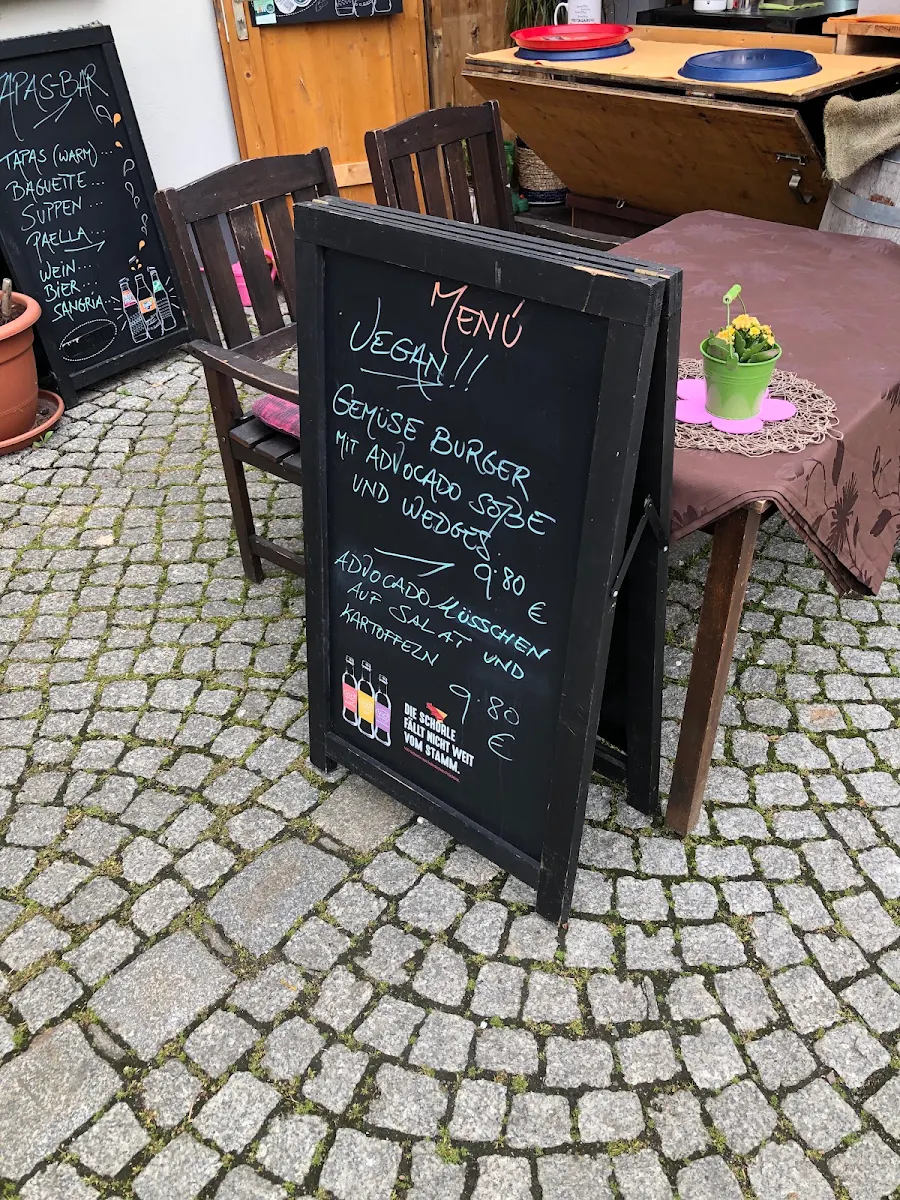 TAPAS-BAR
TAPAS (WARM)...
BAGUETTE...
SUPPEN...
PAELLA...
WEIN...
BIER...
SANGRIA...
MENÚ
VEGAN!!
GEMÜSE BURGER
MIT ADVOCADO SOßE
UND WEDGES.
9.80 €
ADVOCADO NÜSSCHEN
AUF SALAT UND
KARTOFFELN
9.80
€
DIE SCHORLE
FÄLLT NICHT WEIT
VOM STAMM.